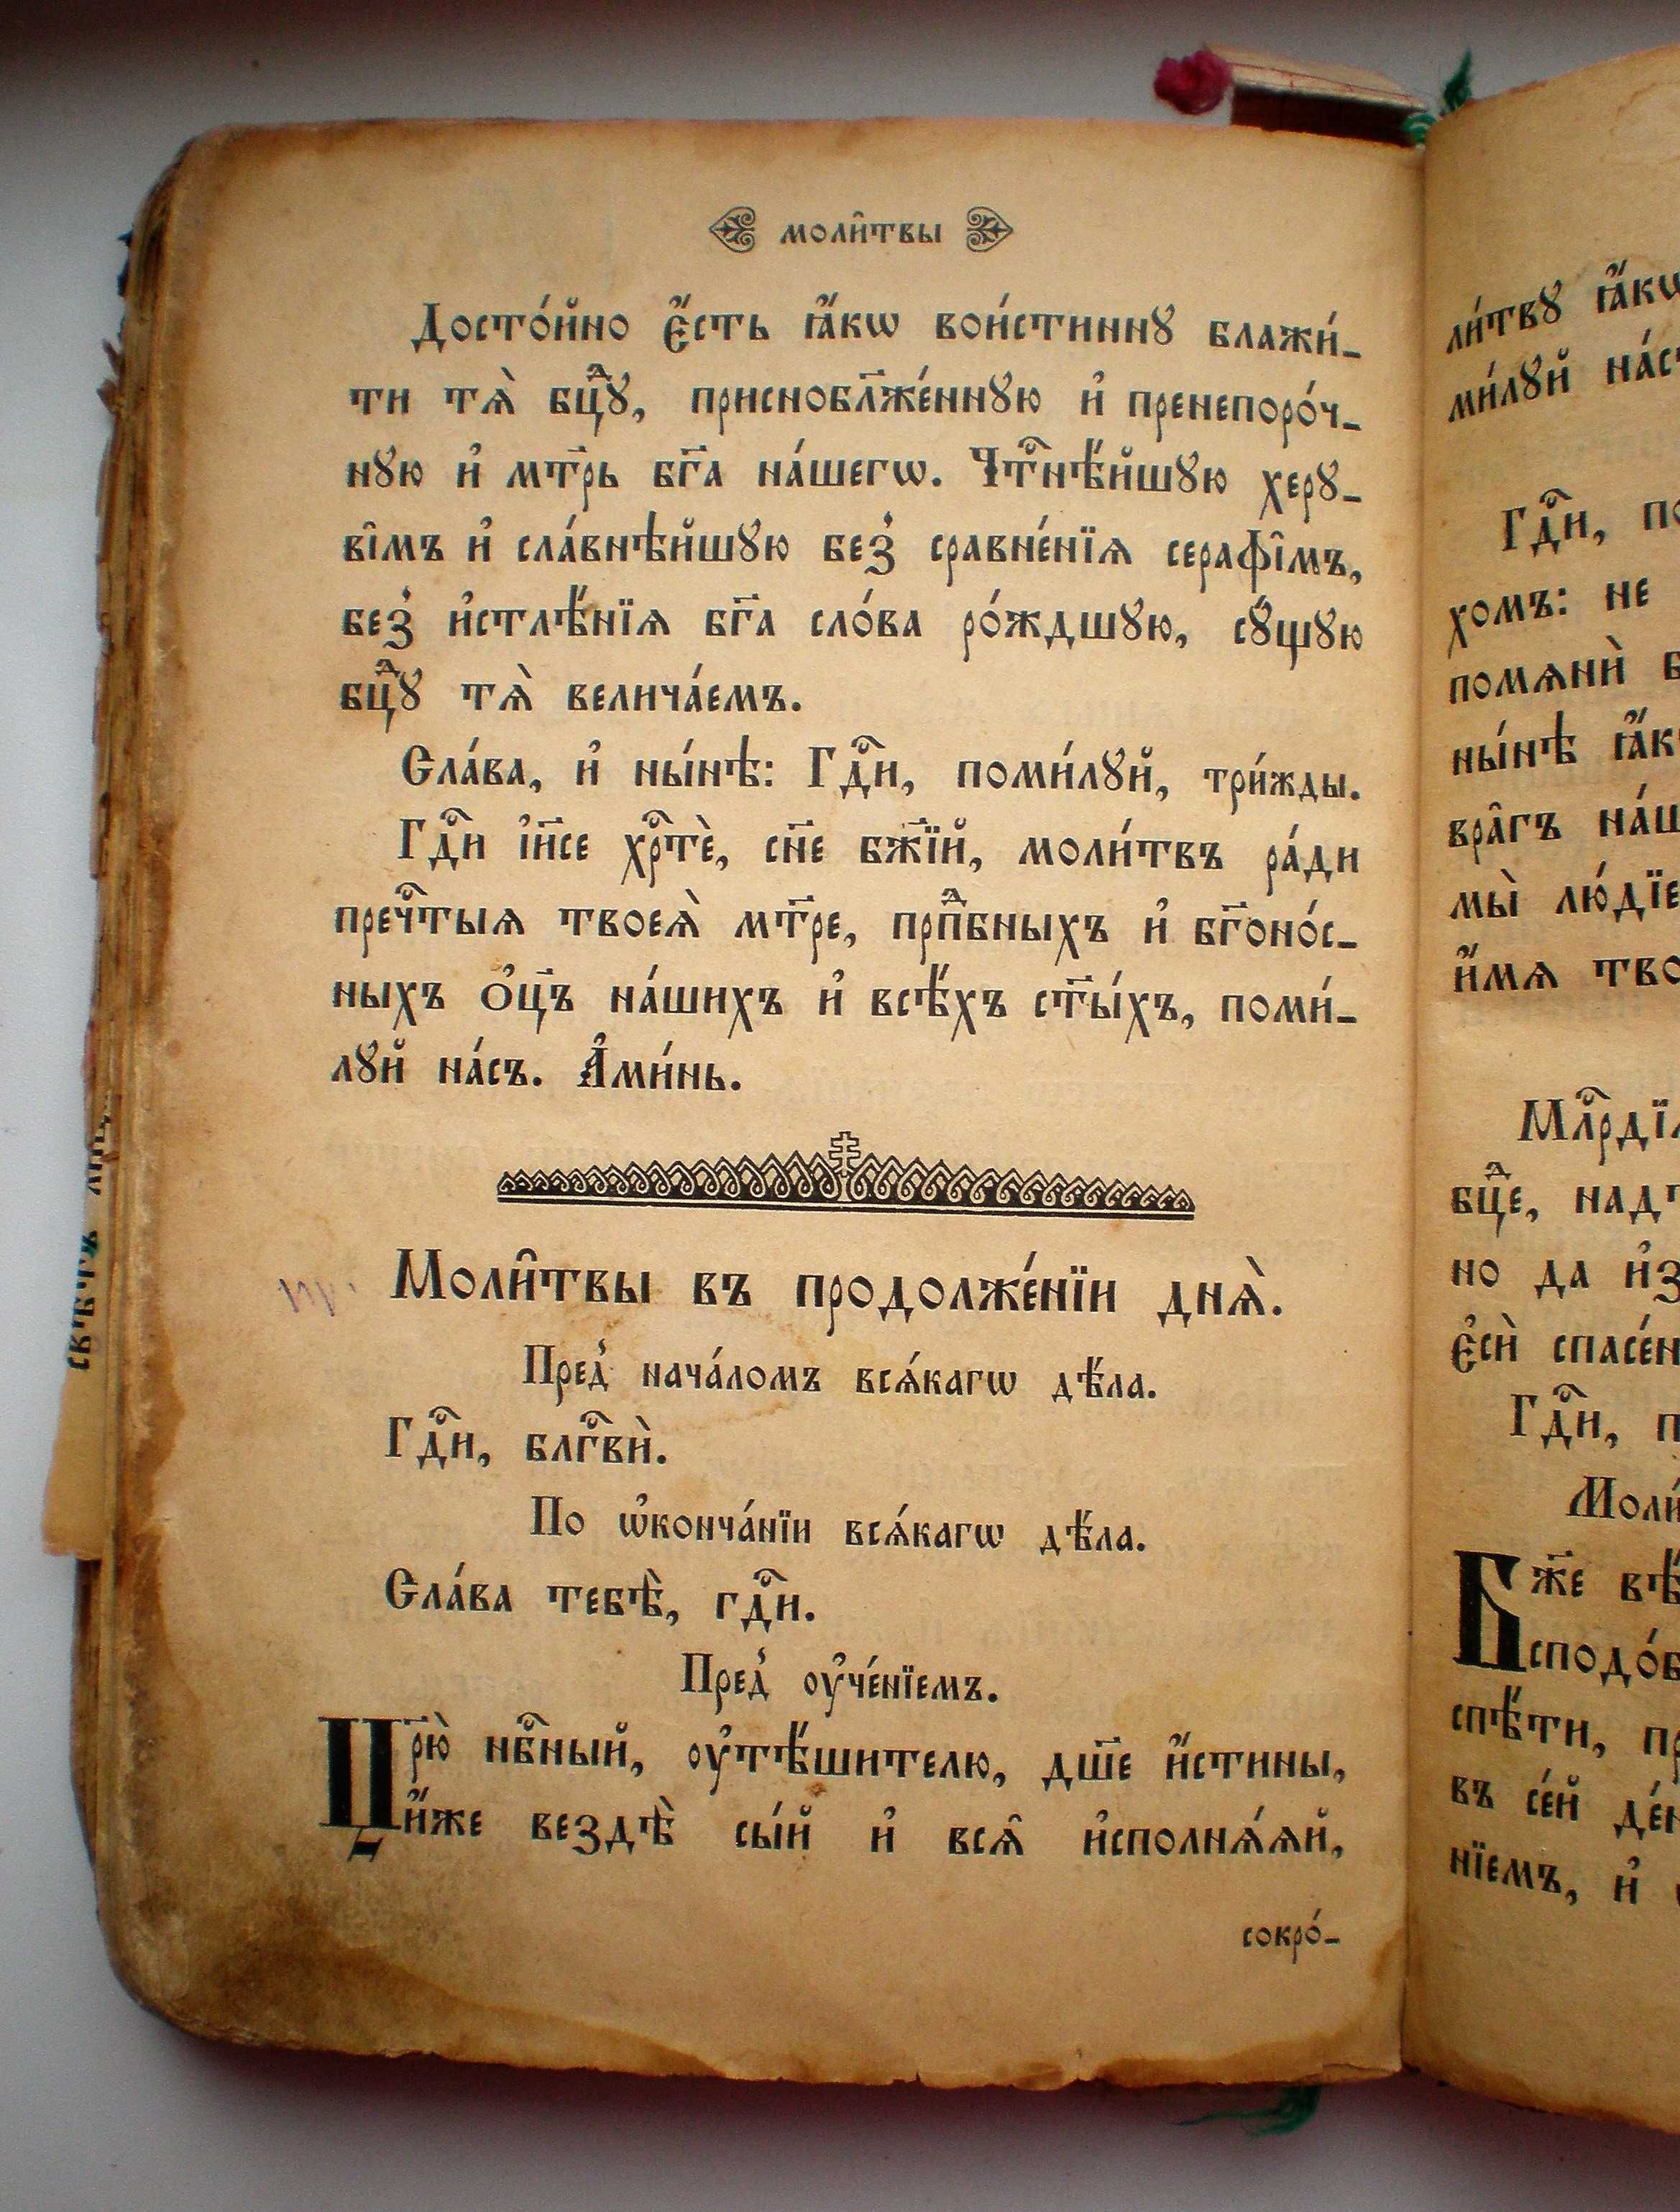 моли̑твы
Досто́йно є҆́сть ꙗ҆́кѡ вои́стиннꙋ блажи́-
ти тѧ̀ бцⷣꙋ, присноблж҃е́ннꙋю и҆ пренепоро́ч-
нꙋю и҆ мт҃рь бг҃а на́шегѡ. Чтⷭ҇нѣ́йшꙋю херꙋ-
ві̑мъ и҆ сла́внѣйшꙋю без̾ сравне́нїѧ серафі̑мъ,
без̾ и҆стлѣ́нїѧ бг҃а сло́ва ро́ждшꙋю, сꙋ́щꙋю
бцⷣꙋ тѧ̀ велича́емъ.
Сла́ва, и҆ ны́нѣ: Гдⷭ҇и, поми́лꙋй, три́жды.
Гдⷭ҇и і҆и҃се хрⷭ҇тѐ, сн҃е бж҃їй, моли́твъ ра́ди
пречⷭ҇тыѧ твоеѧ̀ мт҃ре, прпⷣбныхъ и҆ бг҃оно́с-
ныхъ ѻ҆ц҃ъ на́шихъ и҆ всѣ́хъ ст҃ы́хъ, поми́-
лꙋй на́съ. А҆ми́нь.
Моли̑твы въ продолже́нїи днѧ̀.
Пред̾ нача́ломъ всѧ́кагѡ дѣ́ла.
Гдⷭ҇и, блгⷭ҇вѝ.
По ѡ҆конча́нїи всѧ́кагѡ дѣ́ла.
Сла́ва тебѣ̀, гдⷭ҇и.
Пред̾ ᲂу҆че́нїемъ.
Цр҃ю̀ нбⷭ҇ный, ᲂу҆тѣ́шителю, дш҃е и҆́стины,
и҆́же вездѣ̀ сы́й и҆ всѧ̑ и҆сполнѧ́ѧй,
сокро́-
ли́твꙋ ꙗ҆́кѡ
ми́лꙋй на́с
Гдⷭ҇и, по
хомъ: не
помѧнѝ б
ны́нѣ ꙗ҆́к
вра̑гъ на́ш
мы̀ лю́дїе
и҆́мѧ тво
Млⷭ҇рдїѧ
бцⷣе, над
но да и҆з
є҆сѝ спасе́н
Гдⷭ҇и, п
Моли́
Бж҃е вѣ́
сподо́б
спѣ́ти, пр
въ се́й де́н
нїемъ, и҆